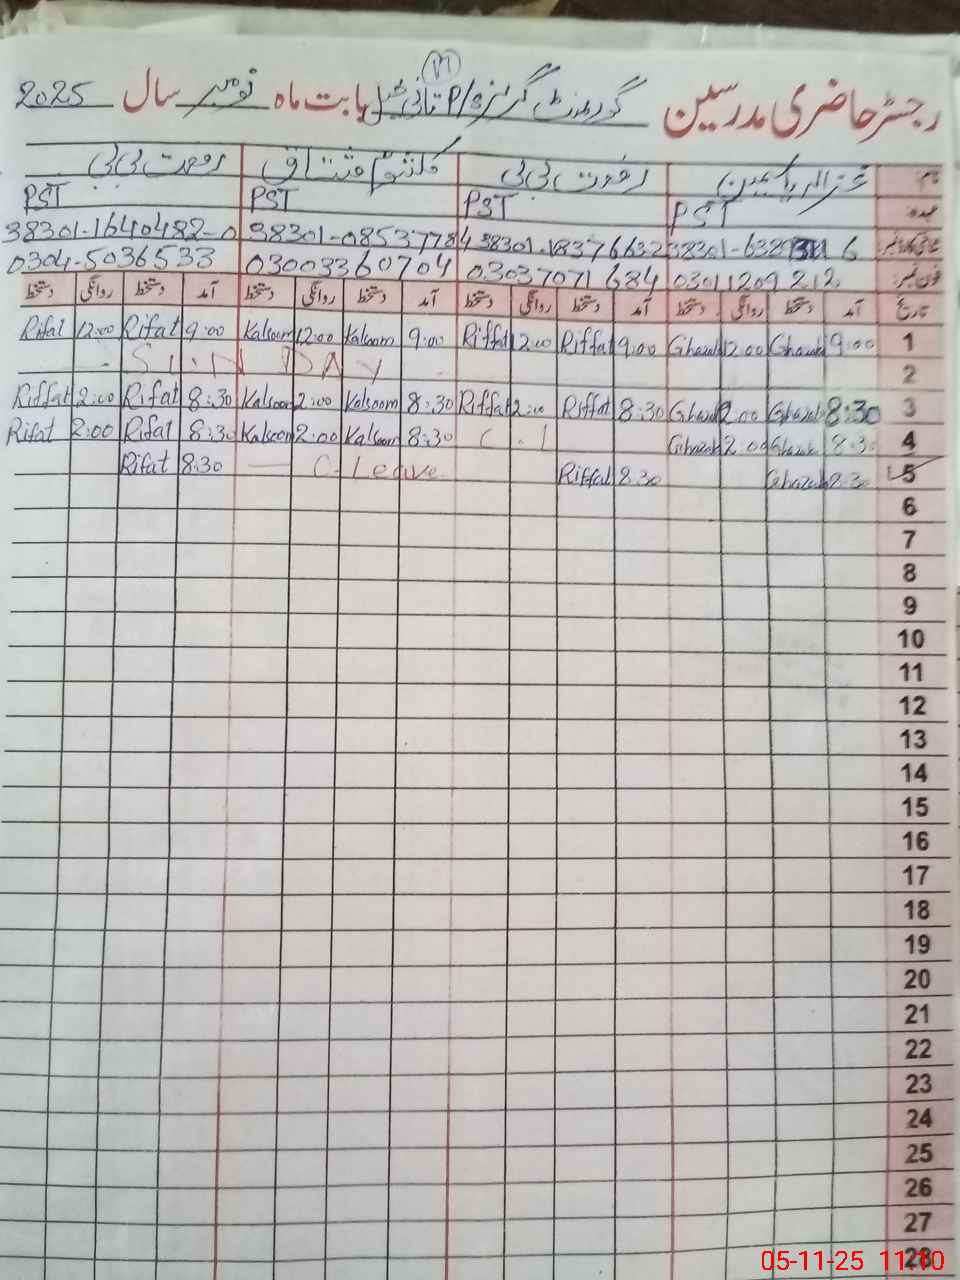 رجسٹر حاضری مدرسین گورنمنٹ گرلز P/S بابت ماہ نومبر سال 2025
نام غزالہ یاسمین رفعت بی بی کلثوم مشتاق رفعت بی بی
عہدہ PST PST PST PST
38301-1837663 38301-08537784 38301-1640482-0
فون نمبر 03011209212 03037071684 03003360704 0304-5036533
تاریخ آمد دستخط روانگی دستخط آمد دستخط روانگی دستخط آمد دستخط روانگی دستخط آمد دستخط روانگی دستخط
1 9:00 Ghazala 12:00 Ghazala 9:00 Riffat 12:00 Riffat 9:00 Kalsoom 12:00 Kalsoom 9:00 Rifat 12:00 Rifat
2 SUNDAY
3 8:30 Ghazala 2:00 Ghazala 8:30 Riffat 2:00 Riffat 8:30 Kalsoom 2:00 Kalsoom 8:30 Rifat 2:00 Riffat
4 8:30 Ghazala 2:00 Ghazala C.L 8:30 Kalsoom 2:00 Kalsoom 8:30 Rifat 2:00 Rifat
5 8:30 Ghazala 8:30 Riffat C-Leave 8:30 Rifat
6
7
8
9
10
11
12
13
14
15
16
17
18
19
20
21
22
23
24
25
26
27
28
05-11-25 11:10